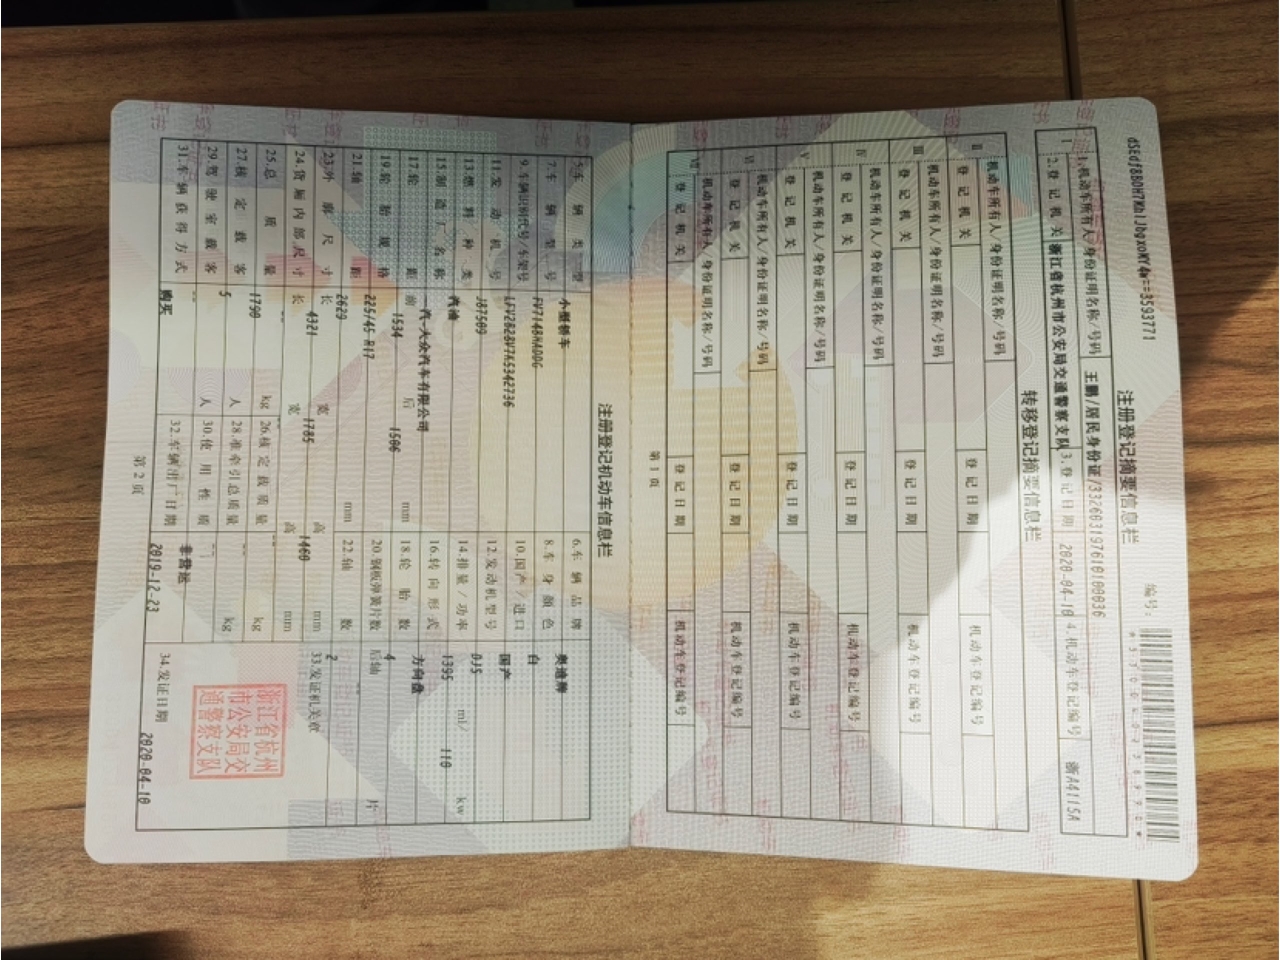 注册登记摘要信息栏
编号:
dSEdf8BOH7Wh1JbgxoMY4w==3593771
I
1.机动车所有人/身份证明名称/号码 王鹏/居民身份证/332603197610100036
2.登记机关 浙江省杭州市公安局交通警察支队 3.登记日期 2020-04-10 4.机动车登记编号 浙A4115A
转移登记摘要信息栏
II
机动车所有人/身份证明名称/号码
登记机关 登记日期 机动车登记编号
III
机动车所有人/身份证明名称/号码
登记机关 登记日期 机动车登记编号
IV
机动车所有人/身份证明名称/号码
登记机关 登记日期 机动车登记编号
V
机动车所有人/身份证明名称/号码
登记机关 登记日期 机动车登记编号
VI
机动车所有人/身份证明名称/号码
登记机关 登记日期 机动车登记编号
VII
机动车所有人/身份证明名称/号码
登记机关 登记日期 机动车登记编号
第1页
注册登记机动车信息栏
5.车辆类型 小型轿车 6.车辆品牌 奥迪牌
7.车辆型号 FV7148HADDG 8.车身颜色 白
9.车辆识别代号/车架号 LFV2B28V7K5342736 10.国产/进口 国产
11.发动机号 J87509 12.发动机型号 DJS
13.燃料种类 汽油 14.排量/功率 1395 ml/ 110 kw
15.制造厂名称 一汽-大众汽车有限公司 16.转向形式 方向盘
17.轮距 前 1534 后 1506 mm 18.轮胎数 4
19.轮胎规格 225/45 R17 20.钢板弹簧片数 后轴 片
21.轴距 2629 mm 22.轴数 2
23.外廓尺寸 长 4321 宽 1785 高 1460 mm 33.发证机关章
24.货厢内部尺寸 长 宽 高 mm
25.总质量 1790 kg 26.核定载质量 kg
27.核定载客 5 人 28.准牵引总质量 kg
29.驾驶室载客 人 30.使用性质 非营运
31.车辆获得方式 购买 32.车辆出厂日期 2019-12-23 34.发证日期 2020-04-10
浙江省杭州
市公安局交
通警察支队
第2页